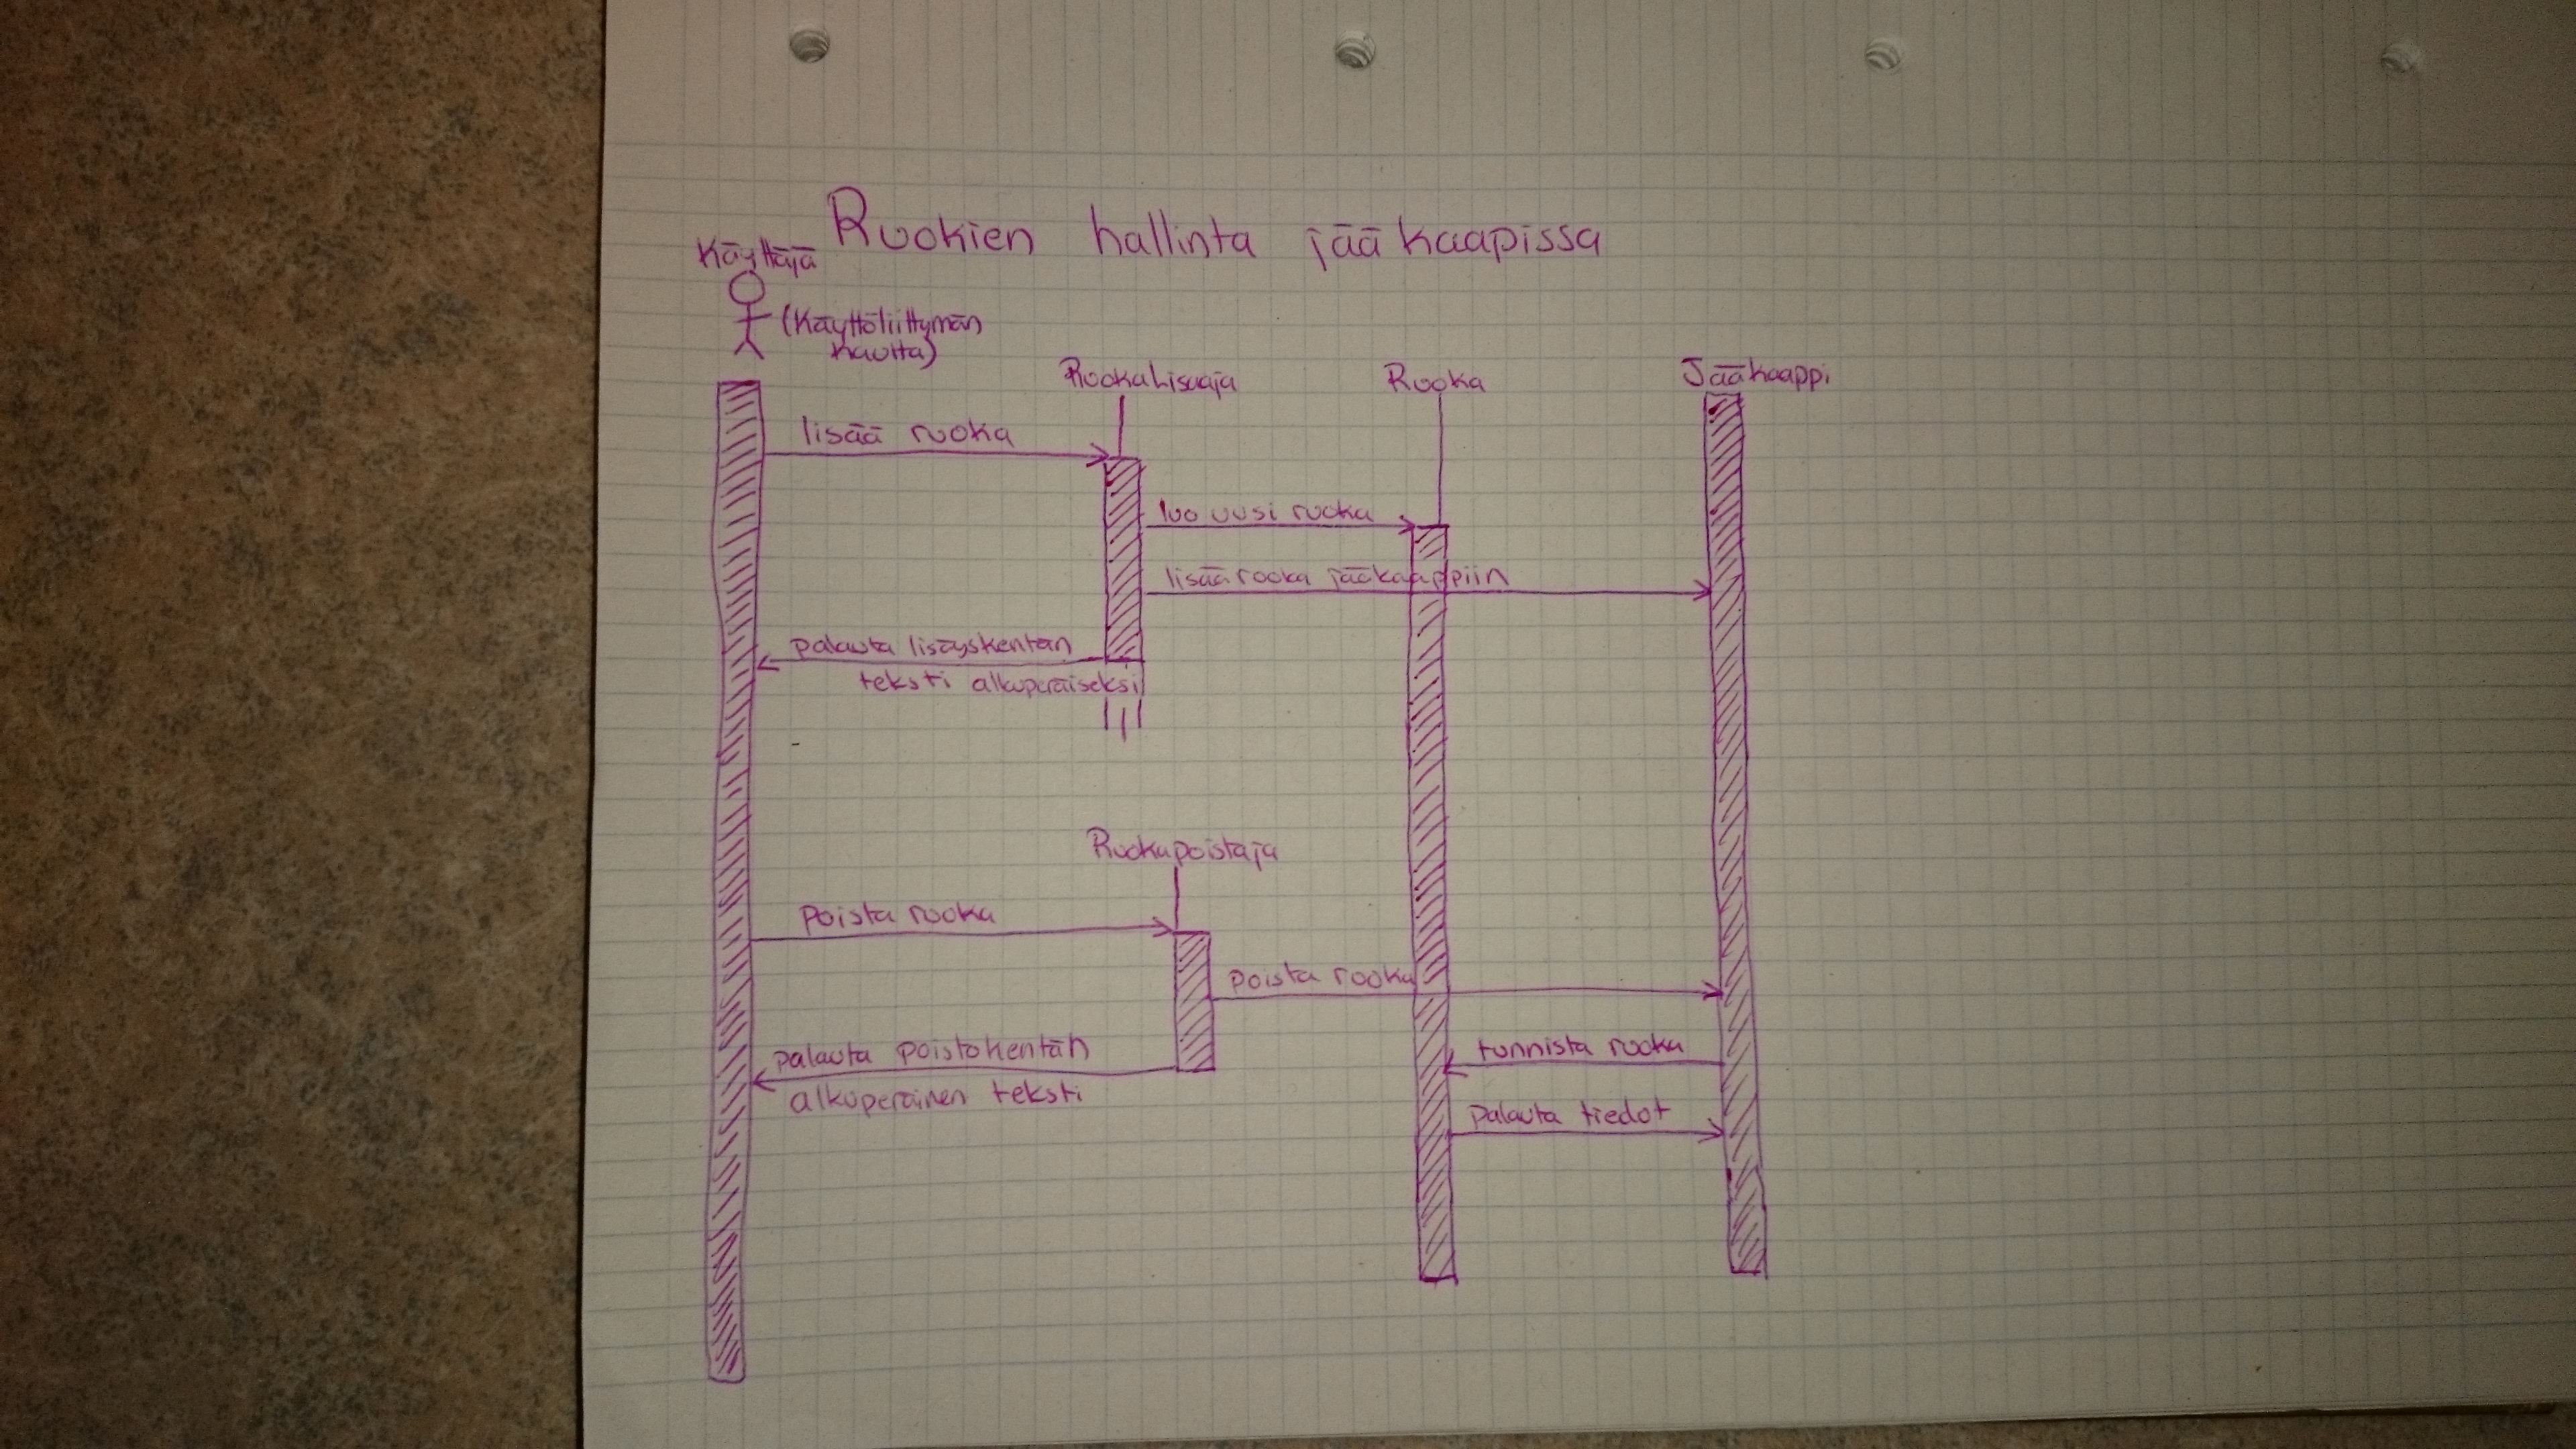 Ruokien hallinta jääkaapissa
Käyttäjä
(Käyttöliittymän
kautta)
RuokaLisaaja
Ruoka
Jääkaappi
lisää ruoka
luo uusi ruoka
lisää ruoka jääkaappiin
palauta lisäyskentän
teksti alkuperäiseksi
Ruokapoistaja
poista ruoka
poista ruoka
palauta poistokentän
alkuperäinen teksti
tunnista ruoka
palauta tiedot